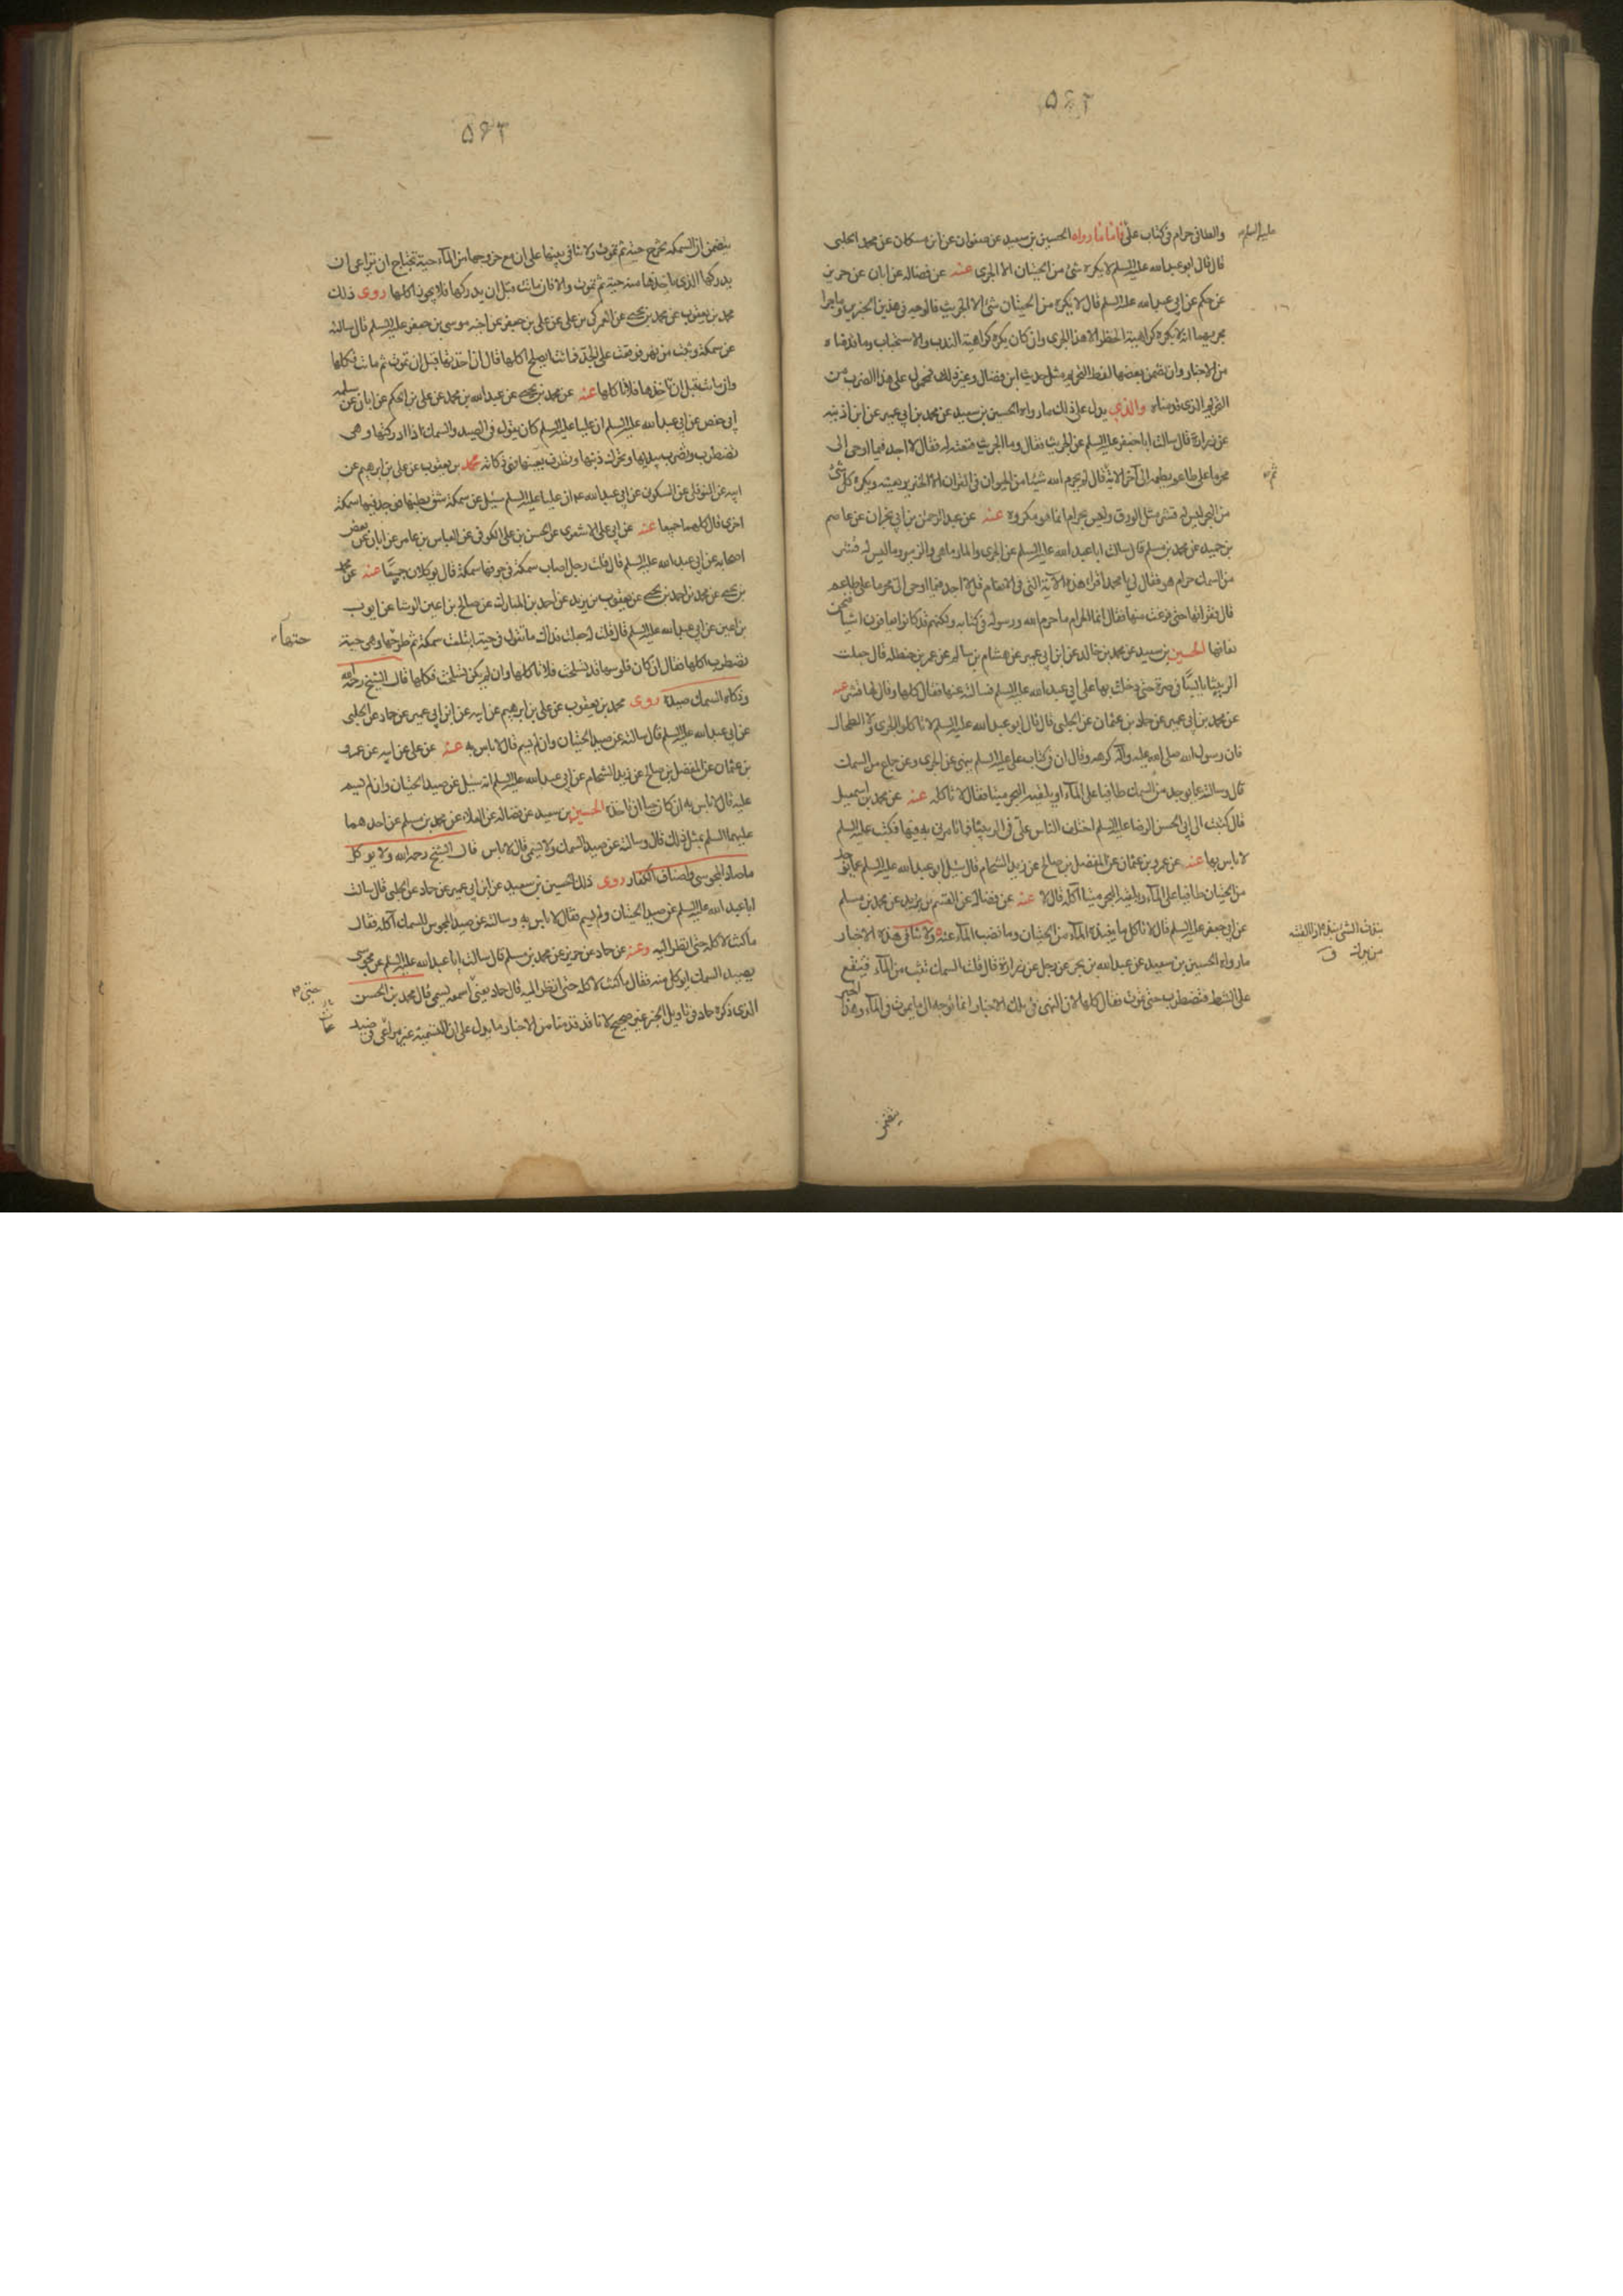 ٥٦٢
والطافي حرام في كتاب علي فاما ما رواه الحسين بن سعيد عن صفوان عن ابن مسكان عن محمد الحلبي
عليه السلم
قال قال ابو عبد الله عليه السلم لا يكره شئ من الحيتان الا الجري عنه عن فضاله عن ابان عن حريز
عن حكم عن ابي عبد الله عليه السلم قال لا يكره من الحيتان شئ الا الجريث فالوجه في هذين الخبرين وما جرا
مجريهما انه لا يكره كراهية الحظر الا هذا الجري وان كان يكره كراهية الندب والاستحباب وما قدمناه
من الاخبار وان تضمن بعضها لفظ التحريم مثل حديث ابن فضال وغيره فمحمول على هذا الضرب من
التحريم الذي قدمناه والذي يدل على ذلك ما رواه الحسين بن سعيد عن محمد بن ابي عمير عن ابن اذينه
عن زرارة قال سالت ابا جعفر عليه السلم عن الجريث فقال وما الجريث فنعته له فقال لا اجد فيما اوحى الى
محرما على طاعم يطعمه الى آخر الاية قال لم يحرم الله شيئا من الحيوان في القران الا الخنزير بعينه ويكره كل شئ
من البحر ليس له قشر مثل الورق وليس بحرام انما هو مكروه عنه عن عبد الرحمن بن ابي نجران عن عاصم
بن حميد عن محمد بن مسلم قال سالت ابا عبد الله عليه السلم عن الجري والمار ماهي والزمير وما ليس له قشر
من السمك حرام هو فقال لي يا محمد اقرا هذه الاية التي في الانعام قل لا اجد فيما اوحى الى محرما على طاعم
قال فقراتها حتى فرغت منها فقال انما الحرام ما حرم الله ورسوله في كتابه ولكنهم قد كانوا يعافون اشيا فنحن
نعافها الحسين بن سعيد عن محمد بن خالد عن ابن ابي عمير عن هشام بن سالم عن عمر بن حنظله قال حملت
الربيثا يابسا في صرة حتى دخلت بها على ابي عبد الله عليه السلم فسالته عنها فقال كلها وقال لها قشر عنه
عن محمد بن ابي عمير عن حماد بن عثمان عن الحلبي قال قال ابو عبد الله عليه السلم لا تاكل الجري ولا الطحال
فان رسول الله صلى الله عليه وآله كرهه وقال ان في كتاب علي عليه السلم ينهى عن الجري وعن جماع من السمك
قال وسالته عما يوجد من السمك طافيا على الماء او يلقيه البحر ميتا فقال لا تاكله عنه عن محمد بن اسمعيل
قال كتبت الى ابي الحسن الرضا عليه السلم اختلف الناس علي في الربيثا فما تامرني به فيها فكتب عليه السلم
لا باس بها عنه عن عمرو بن عثمان عن المفضل بن صالح عن زيد الشحام قال سئل ابو عبد الله عليه السلم عما يوجد
من الحيتان طافيا على الماء ويلقيه البحر ميتا آكله قال لا عنه عن فضاله عن القسم بن بريد عن محمد بن مسلم
عن ابي جعفر عليه السلم قال لا تاكل ما ينبذه الماء من الحيتان وما نضب الماء عنه ولا تنافي هذه الاخبار
ما رواه الحسين بن سعيد عن عبد الله بن بحر عن رجل عن زرارة قال قلت السمك تثب من الماء فتقع
على الشط فتضطرب حتى تموت فقال كلها لان النهي في تلك الاخبار انما توجه الى ما يموت في الماء وهذا الخبر
يتضمن
٥٦٣
يتضمن ان السمكة تخرج حية ثم تموت ولا تنافي بينها على ان مع خروجها من الماء حية تحتاج ان تراعى ان
يدركها الذي ياخذها منه حية ثم تموت والا فان ماتت قبل ان يدركها فلا يجوز اكلها روى ذلك
محمد بن يعقوب عن محمد بن يحيى عن العمركي بن علي عن علي بن جعفر عن اخيه موسى بن جعفر عليه السلم قال سالته
عن سمكة وثبت من نهر فوقعت على الجد فماتت ايصلح اكلها قال ان اخذتها قبل ان تموت ثم ماتت فكلها
وان ماتت قبل ان تاخذها فلا تاكلها عنه عن محمد بن يحيى عن عبد الله بن محمد عن علي بن الحكم عن ابان عن سلمه
ابي حفص عن ابي عبد الله عليه السلم ان عليا عليه السلم كان يقول في الصيد والسمك اذا ادركتها وهي
تضطرب وتضرب بيديها وتحرك ذنبها وتطرف بعينها فهي ذكاته محمد بن يعقوب عن علي بن ابرهيم عن
ابيه عن النوفلي عن السكوني عن ابي عبد الله ع ان عليا عليه السلم سئل عن سمكة شق بطنها فوجد فيها سمكة
اخرى قال كلهما جميعا عنه عن ابي علي الاشعري عن الحسن بن علي الكوفي عن العباس بن عامر عن ابان عن بعض
اصحابه عن ابي عبد الله عليه السلم قال قلت رجل اصاب سمكة في جوفها سمكة قال يوكلان جميعا عنه عن محمد
بن يحيى عن محمد بن احمد بن يحيى عن يعقوب بن يزيد عن احمد بن المبارك عن صالح بن اعين الوشا عن ايوب
بن اعين عن ابي عبد الله عليه السلم قال قلت له جعلت فداك ما تقول في حية ابتلعت سمكة ثم طرحتها وهي حية
تضطرب اكلها فقال ان كان فلوسها قد تسلخت فلا تاكلها وان لم يكن تسلخت فكلها قال الشيخ رحمه الله
وذكاة السمك صيده روى محمد بن يعقوب عن علي بن ابرهيم عن ابيه عن ابن ابي عمير عن حماد عن الحلبي
عن ابي عبد الله عليه السلم قال سالته عن صيد الحيتان وان لم يسم قال لا باس به عنه عن علي عن ابيه عن عمرو
بن عثمان عن المفضل بن صالح عن زيد الشحام عن ابي عبد الله عليه السلم انه سئل عن صيد الحيتان وان لم يسم
عليه قال لا باس به ان كان حيا ان تاخذه الحسين بن سعيد عن فضاله عن العلاء عن محمد بن مسلم عن احدهما
عليهما السلم بمثل ذلك قال وسالته عن صيد السمك ولا يسمى قال لا باس قال الشيخ رحمه الله ولا يوكل
ما صاده المجوسي واصناف الكفار روى ذلك الحسين بن سعيد عن ابن ابي عمير عن حماد عن الحلبي قال سالت
ابا عبد الله عليه السلم عن صيد الحيتان ولم يسم فقال لا باس به وسالته عن صيد المجوس للسمك آكله فقال
ما كنت لاكله حتى انظر اليه وعنه عن حماد عن حريز عن محمد بن مسلم قال سالت ابا عبد الله عليه السلم عن مجوسي
يصيد السمك ايوكل منه فقال ما كنت لاكله حتى انظر اليه قال حماد يعني اسمعه يسمي قال محمد بن الحسن
الذي ذكره حماد في تاويل الخبر غير صحيح لانا قد قدمنا من الاخبار ما يدل على ان التسمية غير مراعى في صيد